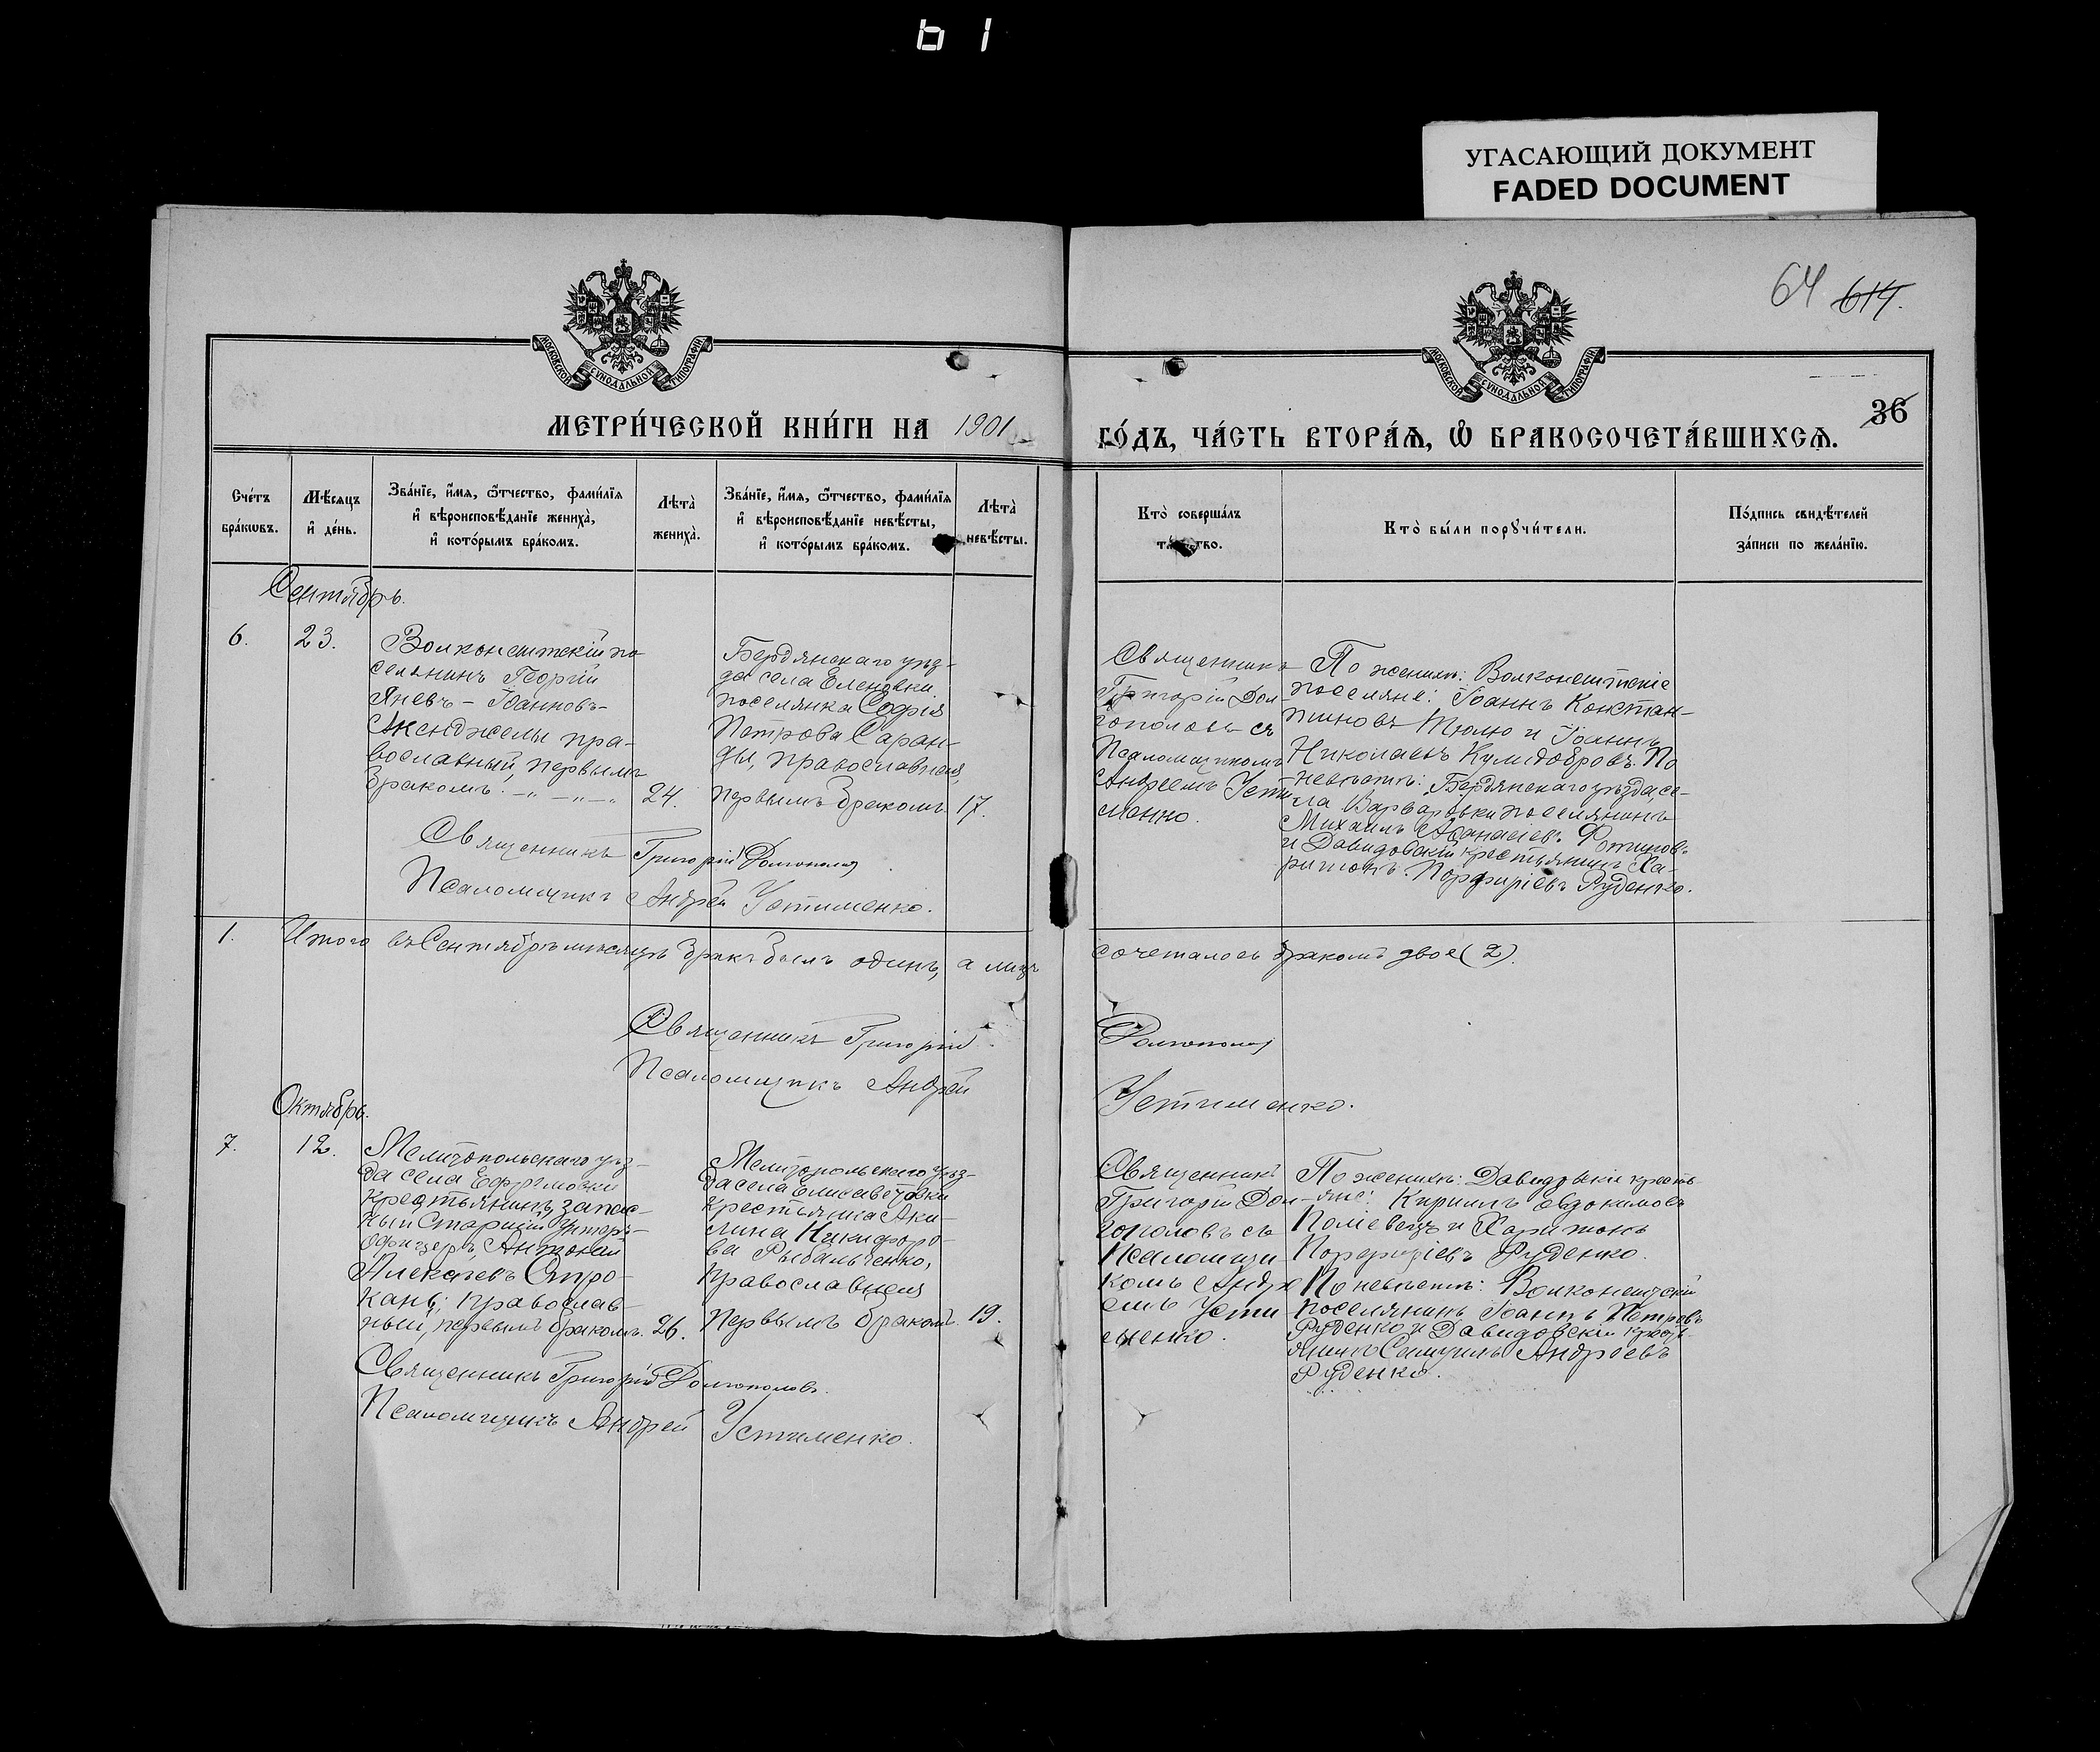 b 1
УГАСАЮЩИЙ ДОКУМЕНТ
FADED DOCUMENT
64 614.
МОСКОВСКОЙ СѴНОДАЛЬНОЙ ТИПОГРАФІИ
МОСКОВСКОЙ СѴНОДАЛЬНОЙ ТИПОГРАФІИ
36
МЕТРИ́ЧЕСКОЙ КНИ́ГИ НА 1901
ГО́ДЪ, ЧА́СТЬ ВТОРА́Ѧ, Ѽ БРАКОСОЧЕТА́ВШИХСѦ.
Сче́тъ
бра́кѡвъ.
Мѣ́сяцъ
и҆ де́нь.
Зва́нїе, и҆́мя, ѻ҆́тчество, фами́лїя
и҆ вѣроисповѣ́данїе жениха̀,
и҆ кото́рымъ бра́комъ.
Лѣ́та̀
жениха̀.
Зва́нїе, и҆́мя, ѻ҆́тчество, фами́лїя
и҆ вѣроисповѣ́данїе невѣ́сты,
и҆ кото́рымъ бра́комъ.
Лѣ́та̀
невѣ́сты.
Кто̀ соверша́лъ
та ство.
Кто̀ бы́ли порꙋчи́тели.
По́дпись свидѣ́телей
за́писи по жела́нїю.
Сентябрь.
6.
23.
Волконештскій по
селянинъ Георгій
Яневъ - Іоанновъ-
пра-
вославный, первымъ
бракомъ. -„-„-„
24.
Бердянскаго уѣз-
да села Еленовки
поселянка Софія
Петрова Саран-
ды, православная,
первымъ бракомъ.
17.
Священникъ
Григорій Дол-
гополовъ съ
Псаломщикомъ
Андреемъ Усти
менко.
По женихѣ: Волконештскіе
поселяне: Іоаннъ Констан-
тиновъ Тюлю и Іоаннъ
Николаевъ Кулидобровъ. По
невѣстѣ: Бердянскаго уѣзда, се-
ла Варваровки поселянинъ
Михаилъ Аѳанасіевъ
и Давидовскій крестьянинъ Ха-
ритонъ Порфиріевъ Руденко.
Священникъ Григорій Долгополов
Псаломщикъ Андрей Устименко.
1.
Итого въ Сентябрѣ мѣсяцѣ бракъ былъ одинъ, а лицъ
сочеталось бракомъ двое (2).
Священникъ Григорій
Долгополов
Псаломщикъ Андрей
Устименко.
Октябрь.
7.
12.
Мелитопольскаго уѣз-
да села Ефремовки
крестьянинъ, запас-
ный Старшій Унтеръ-
Офицеръ, Антоній
Алексѣевъ Стро-
канъ; православ-
ный, первымъ бракомъ.
26.
Мелитопольскаго уѣз-
да села Елисаветовки
крестьянка Аки-
лина Никифоро-
ва Рыбальченко,
православная
первымъ бракомъ.
19.
Священникъ
Григорій Дол-
гополовъ съ
Псаломщи-
комъ Андре
емъ Усти
менко.
По женихѣ: Давидовскіе кресть-
яне: Кириллъ Евдокимовъ
и Харитонъ
Порфиріевъ Руденко.
По невѣстѣ: Волконештскій
поселянинъ Іоаннъ Петровъ
Руденко и Давидовскій кресть
янинъ Самуилъ Андреевъ
Руденко.
Священникъ Григорій Долгополовъ.
Псаломщикъ Андрей Устименко.